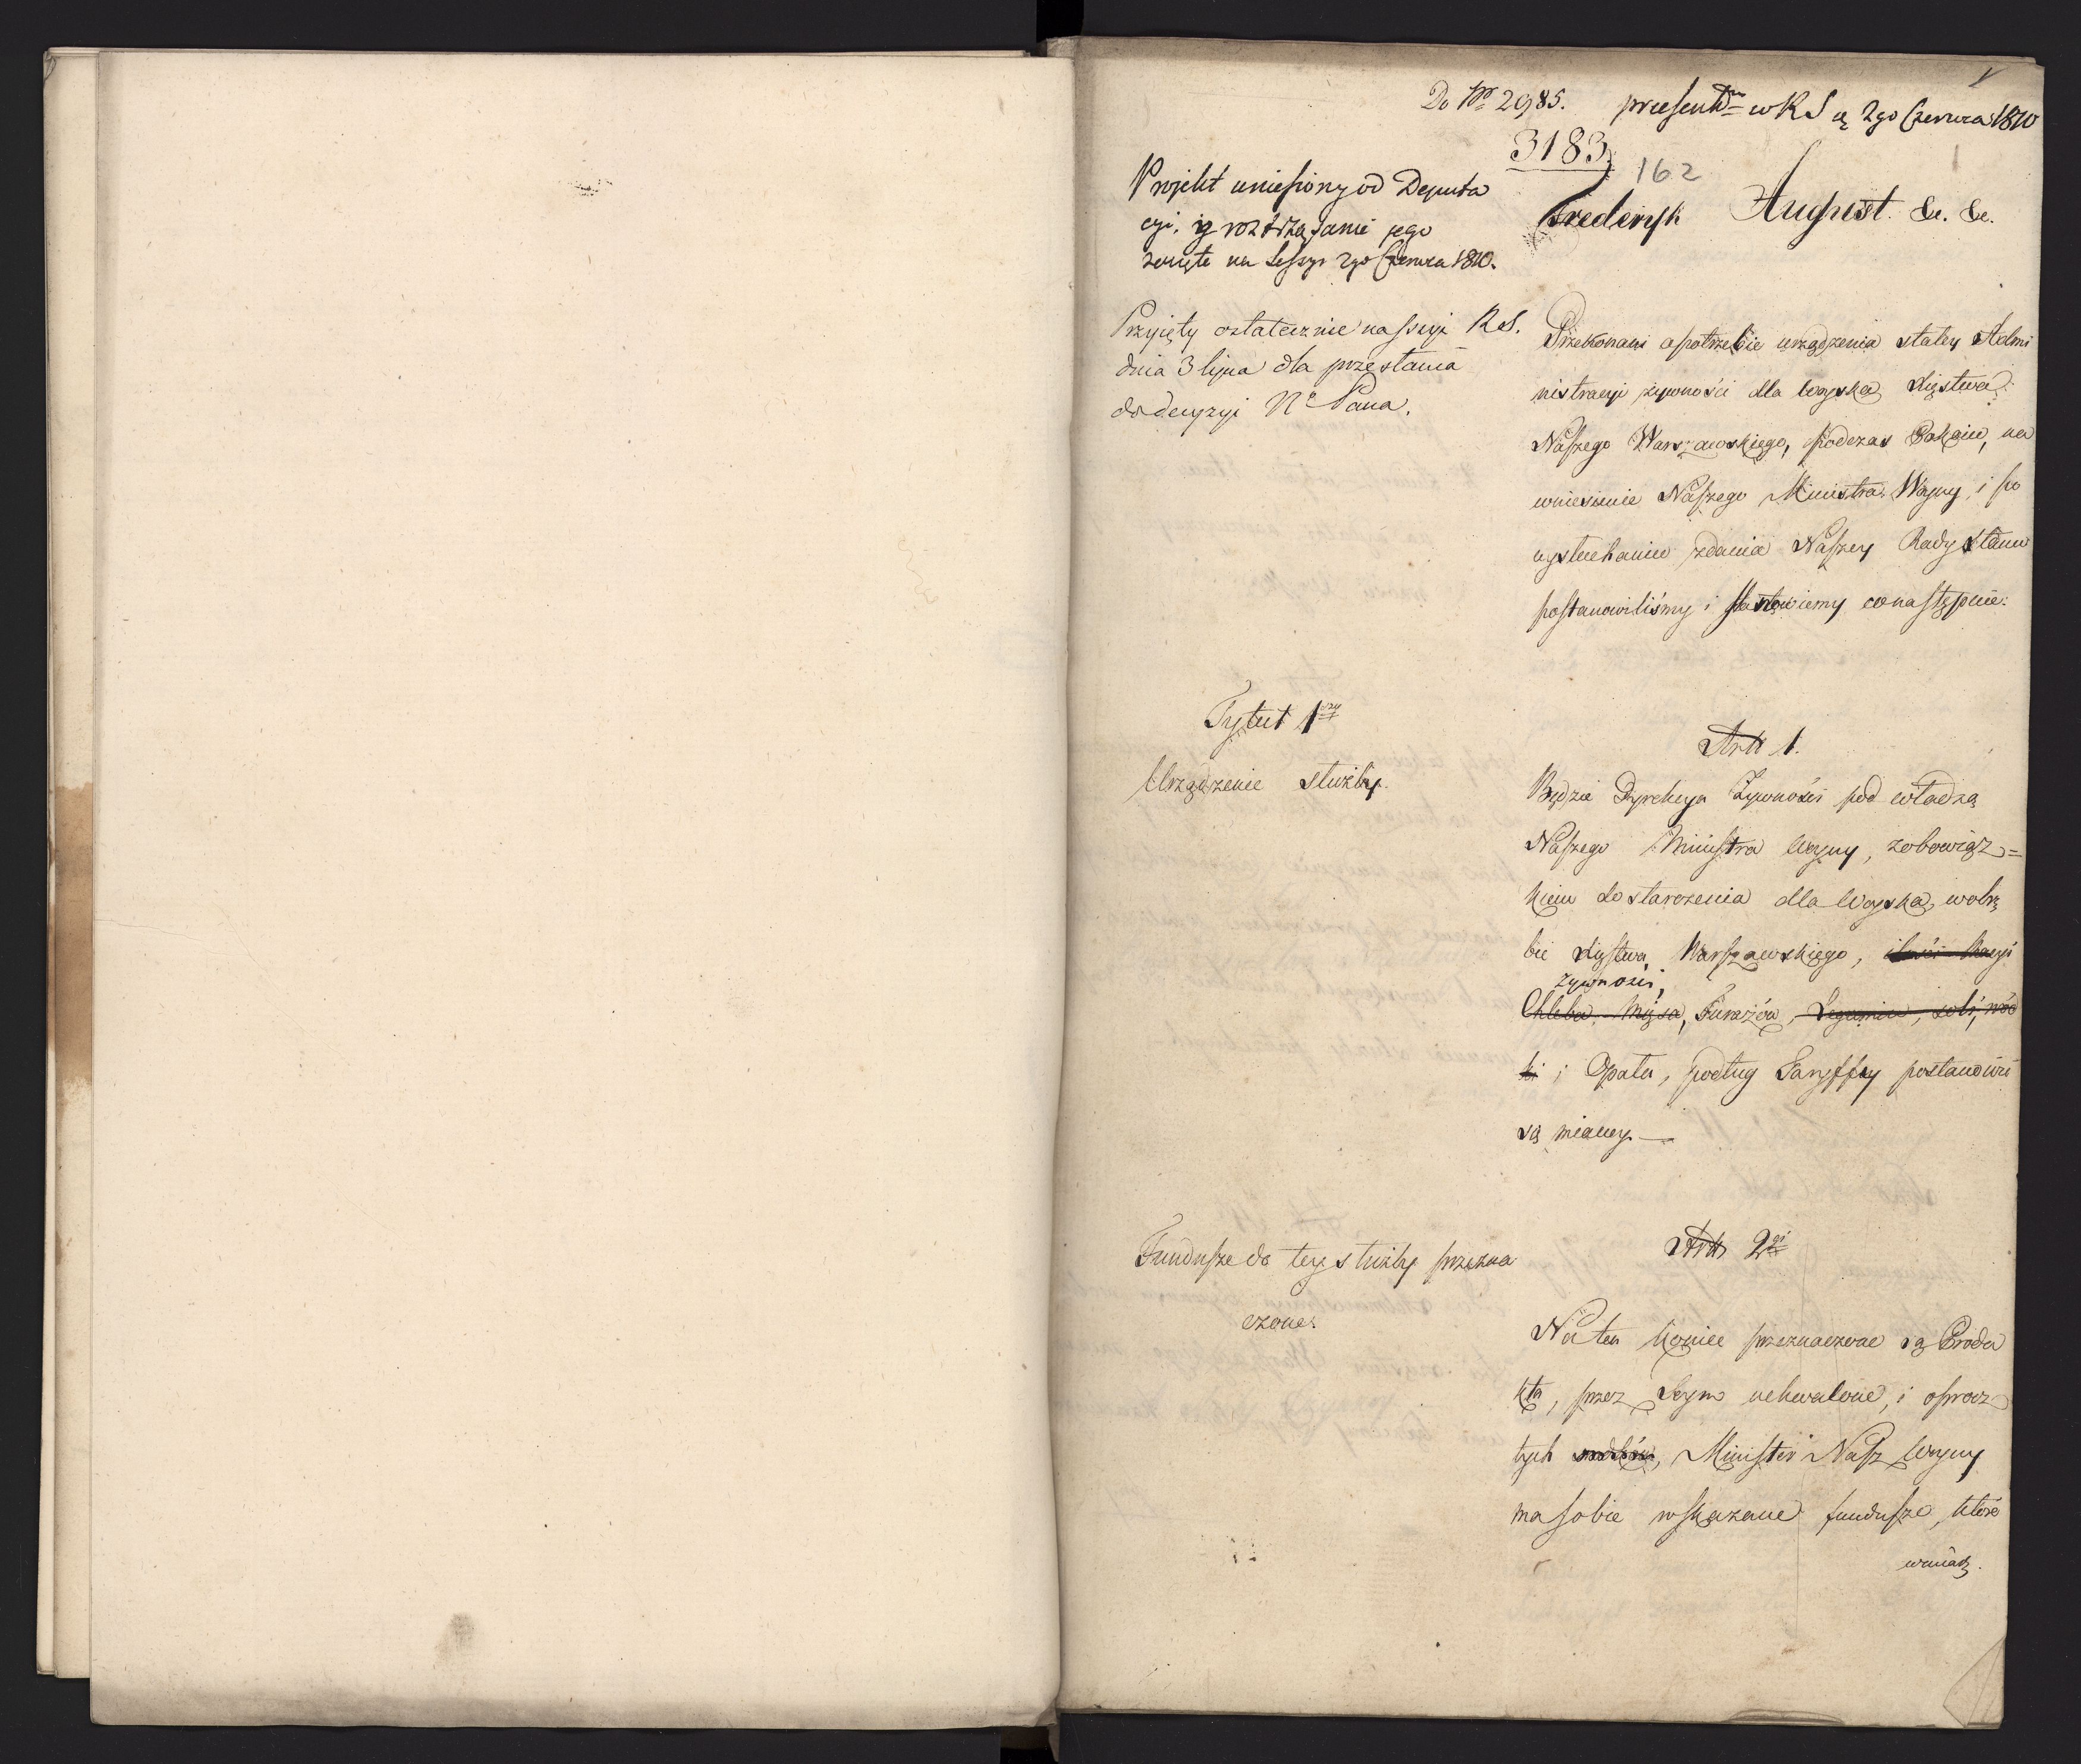 Do Nro 2985. praesentm w R S d. 2go Czerwca 1810
3183.
162
1
Projekt wniesiony od Deputa
cyi, y roztrząsanie jego
zaczęte na Sessyi 2go Czerwca 1810.
Fryderyk August &c. &c.
Przyięty ostatecznie na sessyi R S.
dnia 3 lipca dla przesłania
do decyzyi No Pana.
Przekonani o potrzebie urządzenia stałey Admi
nistracyi żywności dla woyska Xięstwa
Naszego Warszawskiego, podczas Pokoiu, na
wniesienie Naszego Ministra Woyny, i po
wysłuchaniu zdania Naszey Rady Stanu
postanowiliśmy i stanowiemy co następuie:
Tytuł 1szy
Urządzenie służby.
Art 1.
Będzie Dyrekcya Żywności pod władzą
Naszego Ministra Woyny, z obowiąz=
kiem dostarczenia dla Woyska, w obrę
bie Xięstwa Warszawskiego,
żywności,
Chleba, Mięsa, Furażów, Legumin, soli, wód
ki i Opału, podług Taryffy postanowić
się mianey.
Fundusze do tey służby przezna
czone.
Art 2gi
Na ten koniec przeznaczone są Produ
kta, przez Seym uchwalone, i oprócz
tych Minister Nasz Woyny
ma sobie wskazane fundusze, które